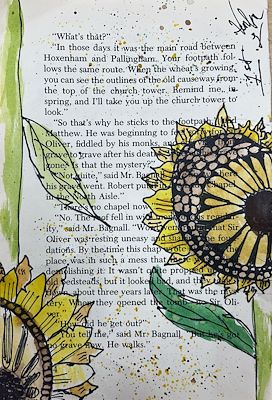 "What's that?"
"In those days it was the main road between
Hoxenham and Pallingham. Your footpath fol-
lows the same route. When the wheat's growing,
you can see the outlines of the old causeway from
the top of the church tower. Remind me, in
spring, and I'll take you up the church tower to
look."
"So that's why he sticks to the footpath,"
Matthew. He was beginning to
Oliver, fiddled by his monks,
grave to grave after his dea
gone. Is that the mystery?"
"Not quite," said Mr. Bagnall. where
his grave went. Robert pu Chapel
in the North Aisle."
"There's no chapel now
"No. The roof fell in
ify," said Mr. Bagnall. "Wor that Sir
Oliver was resting uneasy and sha the foun-
dations. By the time this chap wrote
place was in such a mess that
demolishing it. It wasn't
old bedsteads, but it looked bad, and they
down, about three years later. That was the mys-
tery. When they opened the tomb, Sir Oli-
ver."
"How did he get out?"
"You tell me," said Mr. Bagnall. "But he's got
no grave now. He walks."